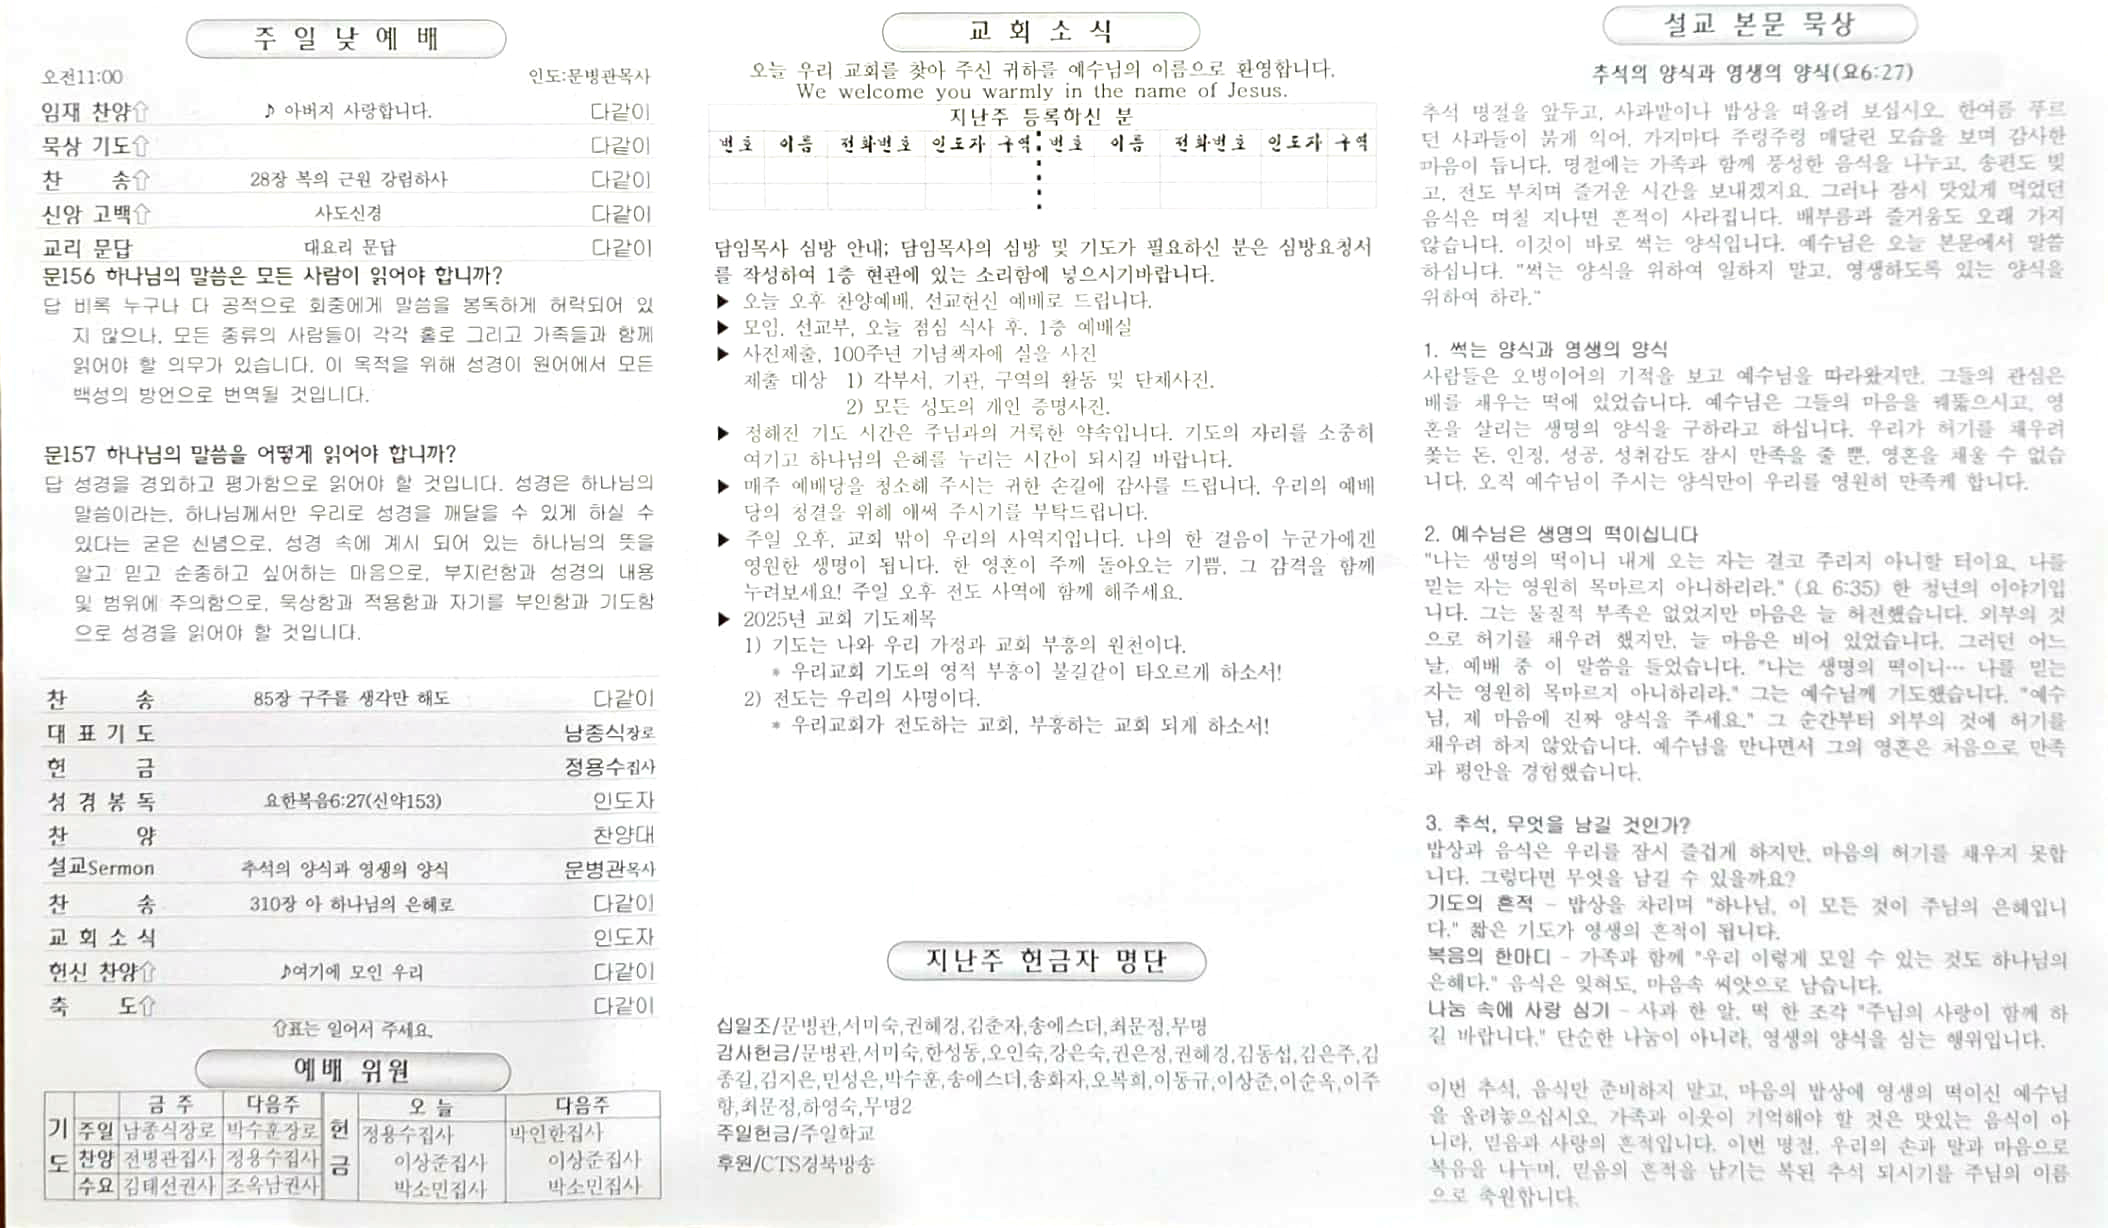 주 일 낮 예 배
오전11:00 인도:문병관목사
임재 찬양⇧ ♪ 아버지 사랑합니다. 다같이
묵상 기도⇧ 다같이
찬 송⇧ 28장 복의 근원 강림하사 다같이
신앙 고백⇧ 사도신경 다같이
교리 문답 대요리 문답 다같이
문156 하나님의 말씀은 모든 사람이 읽어야 합니까?
답 비록 누구나 다 공적으로 회중에게 말씀을 봉독하게 허락되어 있
지 않으나, 모든 종류의 사람들이 각각 홀로 그리고 가족들과 함께
읽어야 할 의무가 있습니다. 이 목적을 위해 성경이 원어에서 모든
백성의 방언으로 번역될 것입니다.
문157 하나님의 말씀을 어떻게 읽어야 합니까?
답 성경을 경외하고 평가함으로 읽어야 할 것입니다. 성경은 하나님의
말씀이라는, 하나님께서만 우리로 성경을 깨달을 수 있게 하실 수
있다는 굳은 신념으로, 성경 속에 계시 되어 있는 하나님의 뜻을
알고 믿고 순종하고 싶어하는 마음으로, 부지런함과 성경의 내용
및 범위에 주의함으로, 묵상함과 적용함과 자기를 부인함과 기도함
으로 성경을 읽어야 할 것입니다.
찬 송 85장 구주를 생각만 해도 다같이
대 표 기 도 남종식장로
헌 금 정용수집사
성 경 봉 독 요한복음6:27(신약153) 인도자
찬 양 찬양대
설교Sermon 추석의 양식과 영생의 양식 문병관목사
찬 송 310장 아 하나님의 은혜로 다같이
교 회 소 식 인도자
헌신 찬양⇧ ♪여기에 모인 우리 다같이
축 도⇧ 다같이
⇧표는 일어서 주세요.
예배 위원
금 주 다음주 오 늘 다음주
기도 주일 남종식장로 박수훈장로 헌금 정용수집사 박인한집사
찬양 전병관집사 정용수집사 이상준집사 이상준집사
수요 김태선권사 조옥남권사 박소민집사 박소민집사
교 회 소 식
오늘 우리 교회를 찾아 주신 귀하를 예수님의 이름으로 환영합니다.
We welcome you warmly in the name of Jesus.
지난주 등록하신 분
번호 이름 전화번호 인도자 구역 번호 이름 전화번호 인도자 구역
담임목사 심방 안내; 담임목사의 심방 및 기도가 필요하신 분은 심방요청서
를 작성하여 1층 현관에 있는 소리함에 넣으시기바랍니다.
▶ 오늘 오후 찬양예배, 선교헌신 예배로 드립니다.
▶ 모임, 선교부, 오늘 점심 식사 후, 1층 예배실
▶ 사진제출, 100주년 기념책자에 실을 사진
제출 대상 1) 각부서, 기관, 구역의 활동 및 단체사진.
2) 모든 성도의 개인 증명사진.
▶ 정해진 기도 시간은 주님과의 거룩한 약속입니다. 기도의 자리를 소중히
여기고 하나님의 은혜를 누리는 시간이 되시길 바랍니다.
▶ 매주 예배당을 청소해 주시는 귀한 손길에 감사를 드립니다. 우리의 예배
당의 청결을 위해 애써 주시기를 부탁드립니다.
▶ 주일 오후, 교회 밖이 우리의 사역지입니다. 나의 한 걸음이 누군가에겐
영원한 생명이 됩니다. 한 영혼이 주께 돌아오는 기쁨, 그 감격을 함께
누려보세요! 주일 오후 전도 사역에 함께 해주세요.
▶ 2025년 교회 기도제목
1) 기도는 나와 우리 가정과 교회 부흥의 원천이다.
* 우리교회 기도의 영적 부흥이 불길같이 타오르게 하소서!
2) 전도는 우리의 사명이다.
* 우리교회가 전도하는 교회, 부흥하는 교회 되게 하소서!
지난주 헌금자 명단
십일조/문병관,서미숙,권혜경,김춘자,송에스더,최문정,무명
감사헌금/문병관,서미숙,한성동,오인숙,강은숙,권은정,권혜경,김동섭,김은주,김
종길,김지은,민성은,박수훈,송에스더,송화자,오복희,이동규,이상준,이순옥,이주
항,최문정,하영숙,무명2
주일헌금/주일학교
후원/CTS경북방송
설교 본문 묵상
추석의 양식과 영생의 양식(요6:27)
추석 명절을 앞두고, 사과밭이나 밥상을 떠올려 보십시오. 한여름 푸르
던 사과들이 붉게 익어, 가지마다 주렁주렁 매달린 모습을 보며 감사한
마음이 듭니다. 명절에는 가족과 함께 풍성한 음식을 나누고, 송편도 빚
고, 전도 부치며 즐거운 시간을 보내겠지요. 그러나 잠시 맛있게 먹었던
음식은 며칠 지나면 흔적이 사라집니다. 배부름과 즐거움도 오래 가지
않습니다. 이것이 바로 썩는 양식입니다. 예수님은 오늘 본문에서 말씀
하십니다. "썩는 양식을 위하여 일하지 말고, 영생하도록 있는 양식을
위하여 하라."
1. 썩는 양식과 영생의 양식
사람들은 오병이어의 기적을 보고 예수님을 따라왔지만, 그들의 관심은
배를 채우는 떡에 있었습니다. 예수님은 그들의 마음을 꿰뚫으시고, 영
혼을 살리는 생명의 양식을 구하라고 하십니다. 우리가 허기를 채우려
쫓는 돈, 인정, 성공, 성취감도 잠시 만족을 줄 뿐, 영혼을 채울 수 없습
니다. 오직 예수님이 주시는 양식만이 우리를 영원히 만족케 합니다.
2. 예수님은 생명의 떡이십니다
"나는 생명의 떡이니 내게 오는 자는 결코 주리지 아니할 터이요, 나를
믿는 자는 영원히 목마르지 아니하리라." (요 6:35) 한 청년의 이야기입
니다. 그는 물질적 부족은 없었지만 마음은 늘 허전했습니다. 외부의 것
으로 허기를 채우려 했지만, 늘 마음은 비어 있었습니다. 그러던 어느
날, 예배 중 이 말씀을 들었습니다. "나는 생명의 떡이니… 나를 믿는
자는 영원히 목마르지 아니하리라." 그는 예수님께 기도했습니다. "예수
님, 제 마음에 진짜 양식을 주세요." 그 순간부터 외부의 것에 허기를
채우려 하지 않았습니다. 예수님을 만나면서 그의 영혼은 처음으로 만족
과 평안을 경험했습니다.
3. 추석, 무엇을 남길 것인가?
밥상과 음식은 우리를 잠시 즐겁게 하지만, 마음의 허기를 채우지 못합
니다. 그렇다면 무엇을 남길 수 있을까요?
기도의 흔적 - 밥상을 차리며 "하나님, 이 모든 것이 주님의 은혜입니
다." 짧은 기도가 영생의 흔적이 됩니다.
복음의 한마디 - 가족과 함께 "우리 이렇게 모일 수 있는 것도 하나님의
은혜다." 음식은 잊혀도, 마음속 씨앗으로 남습니다.
나눔 속에 사랑 심기 - 사과 한 알, 떡 한 조각 "주님의 사랑이 함께 하
길 바랍니다." 단순한 나눔이 아니라, 영생의 양식을 심는 행위입니다.
이번 추석, 음식만 준비하지 말고, 마음의 밥상에 영생의 떡이신 예수님
을 올려놓으십시오. 가족과 이웃이 기억해야 할 것은 맛있는 음식이 아
니라, 믿음과 사랑의 흔적입니다. 이번 명절, 우리의 손과 말과 마음으로
복음을 나누며, 믿음의 흔적을 남기는 복된 추석 되시기를 주님의 이름
으로 축원합니다.